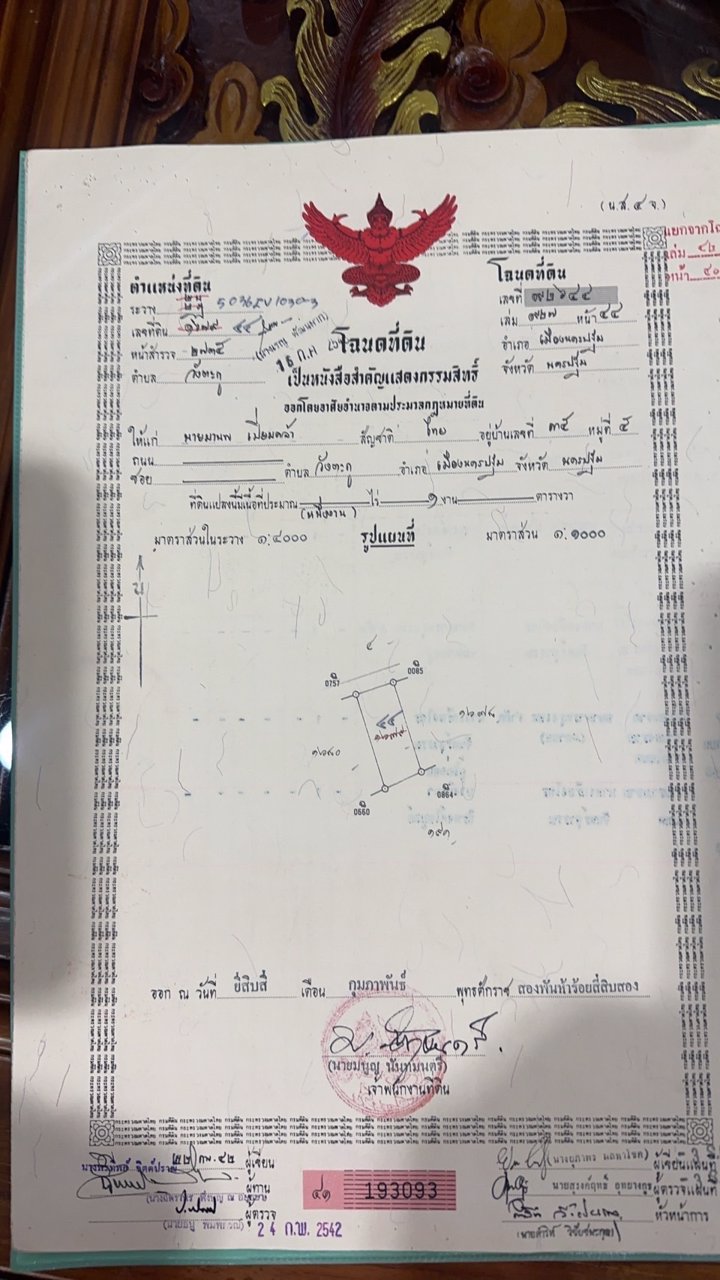 (น.ส.๔ จ.)
ตำแหน่งที่ดิน
ระวาง 5036 IV
เลขที่ดิน ๑๖๗๙ ๕๕
หน้าสำรวจ ๒๗๓๕
ตำบล วังตะกู
16 ก.พ.
โฉนดที่ดิน
เลขที่ ๙๒๖๔๔
เล่ม ๙๒๗ หน้า ๔๔
อำเภอ เมืองนครปฐม
จังหวัด นครปฐม
แยกจากโฉ
เล่ม ๔๒
หน้า ๙๐
โฉนดที่ดิน
เป็นหนังสือสำคัญแสดงกรรมสิทธิ์
ออกโดยอาศัยอำนาจตามประมวลกฎหมายที่ดิน
ให้แก่ นายมานพ เปี่ยมคล้า สัญชาติ ไทย อยู่บ้านเลขที่ ๓๕ หมู่ที่ ๕
ถนน
ซอย ตำบล วังตะกู อำเภอ เมืองนครปฐม จังหวัด นครปฐม
ที่ดินแปลงนี้มีเนื้อที่ประมาณ ไร่ ๑ งาน ตารางวา
(หนึ่งงาน)
มาตราส่วนในระวาง ๑:๔๐๐๐ รูปแผนที่ มาตราส่วน ๑:๑๐๐๐
น
๔
0757 0085
๕๕
๑๖๗๙
๑๖๗๘
๑๖๘๐
0660 0864
๑๙๑
ออก ณ วันที่ ยี่สิบสี่ เดือน กุมภาพันธ์ พุทธศักราช สองพันห้าร้อยสี่สิบสอง
(นายมบุญ นันทมนตรี)
เจ้าพนักงานที่ดิน
๒๒ ก.พ. ๔๒ ผู้เขียน
ผู้ทาน
ผู้ตรวจ
24 ก.พ. 2542
๔๑ 193093
ผู้เขียนแผนที่
ผู้ตรวจแผนที่
หัวหน้าการ